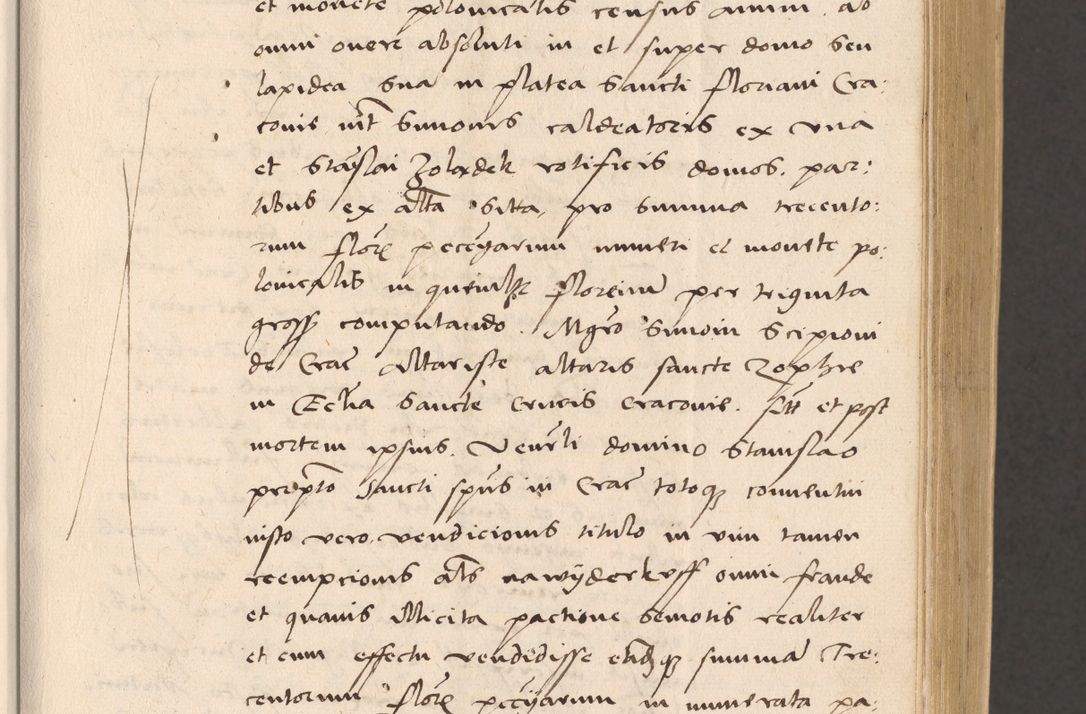 et monete polonicalis census annui ab
omni onere absoluti in et super domo seu
lapidea sua in platea Sancti Floriani Cra:
covie int Simonis caldeatoris ex una
et Stanslai Zoladek rotificis domos, par:
tibus ex alta sitta, pro summa trecento:
rum flore pecunarum numeri et monete po:
lonicalis in quemlt florenum per triginta
gross computando. Mgro Simoni Scipioni
de Crac altariste altaris sancte Zophie
in Ecclia Sancte Crucis Cracovie. Itt et post
mortem ipsius. Venerli domino Stanislao
prepto Sancti spus in Crac totoque conventui
iusto vero vendicionis titulo in vim tamen
reempcionis als nawyderkuff omni fraude
et quavis illicita pactione semotis realiter
et cum effectu vendidisse eandque summam Tre:
centorum flore pecuniarum in numerata pa: